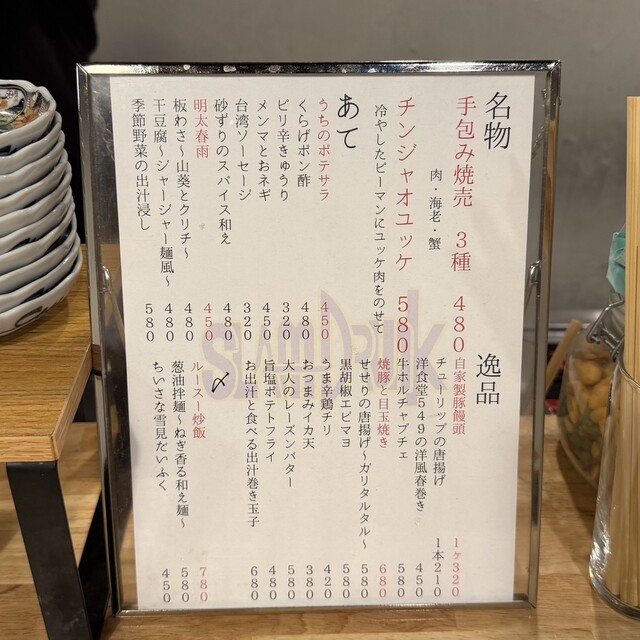 名物
手包み焼売 3種 480
肉・海老・蟹
チンジャオユッケ 580
冷やしたピーマンにユッケ肉をのせて
あて
うちのポテサラ 450
くらげポン酢 480
ピリ辛きゅうり 320
メンマとおネギ 450
台湾ソーセージ 320
砂ずりのスパイス和え 480
明太春雨 450
板わさ~山葵とクリチ~ 480
干豆腐~ジャージャー麺風~ 480
季節野菜の出汁浸し 580
逸品
自家製豚饅頭 1ヶ320
チューリップの唐揚げ 1本210
洋食堂549の洋風春巻き 450
牛ホルチャプチェ 580
焼豚と目玉焼き 680
せせりの唐揚げ~ガリタルタル~ 580
黒胡椒エビマヨ 580
うま辛鶏チリ 420
おつまみイカ天 480
大人のレーズンバター 380
旨塩ポテトフライ 580
お出汁と食べる出汁巻き玉子 680
〆
ルースー炒飯 780
葱油拌麺~ねぎ香る和え麺~ 580
ちいさな雪見だいふく 450